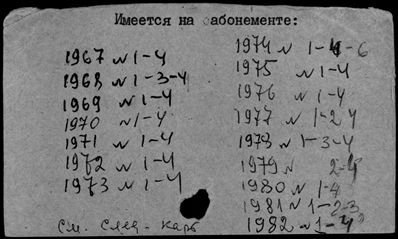 Имеется на абонементе:
1967 № 1-4
1968 № 1-3-4
1969 № 1-4
1970 № 1-4
1971 № 1-4
1972 № 1-4
1973 № 1-4
См. след. карт
1974 № 1-4-6
1975 № 1-4
1976 № 1-4
1977 № 1-2 4
1978 № 1-3-4
1979 № 2-4
1980 № 1-4
1981 № 1-2-3
1982 № 1-4